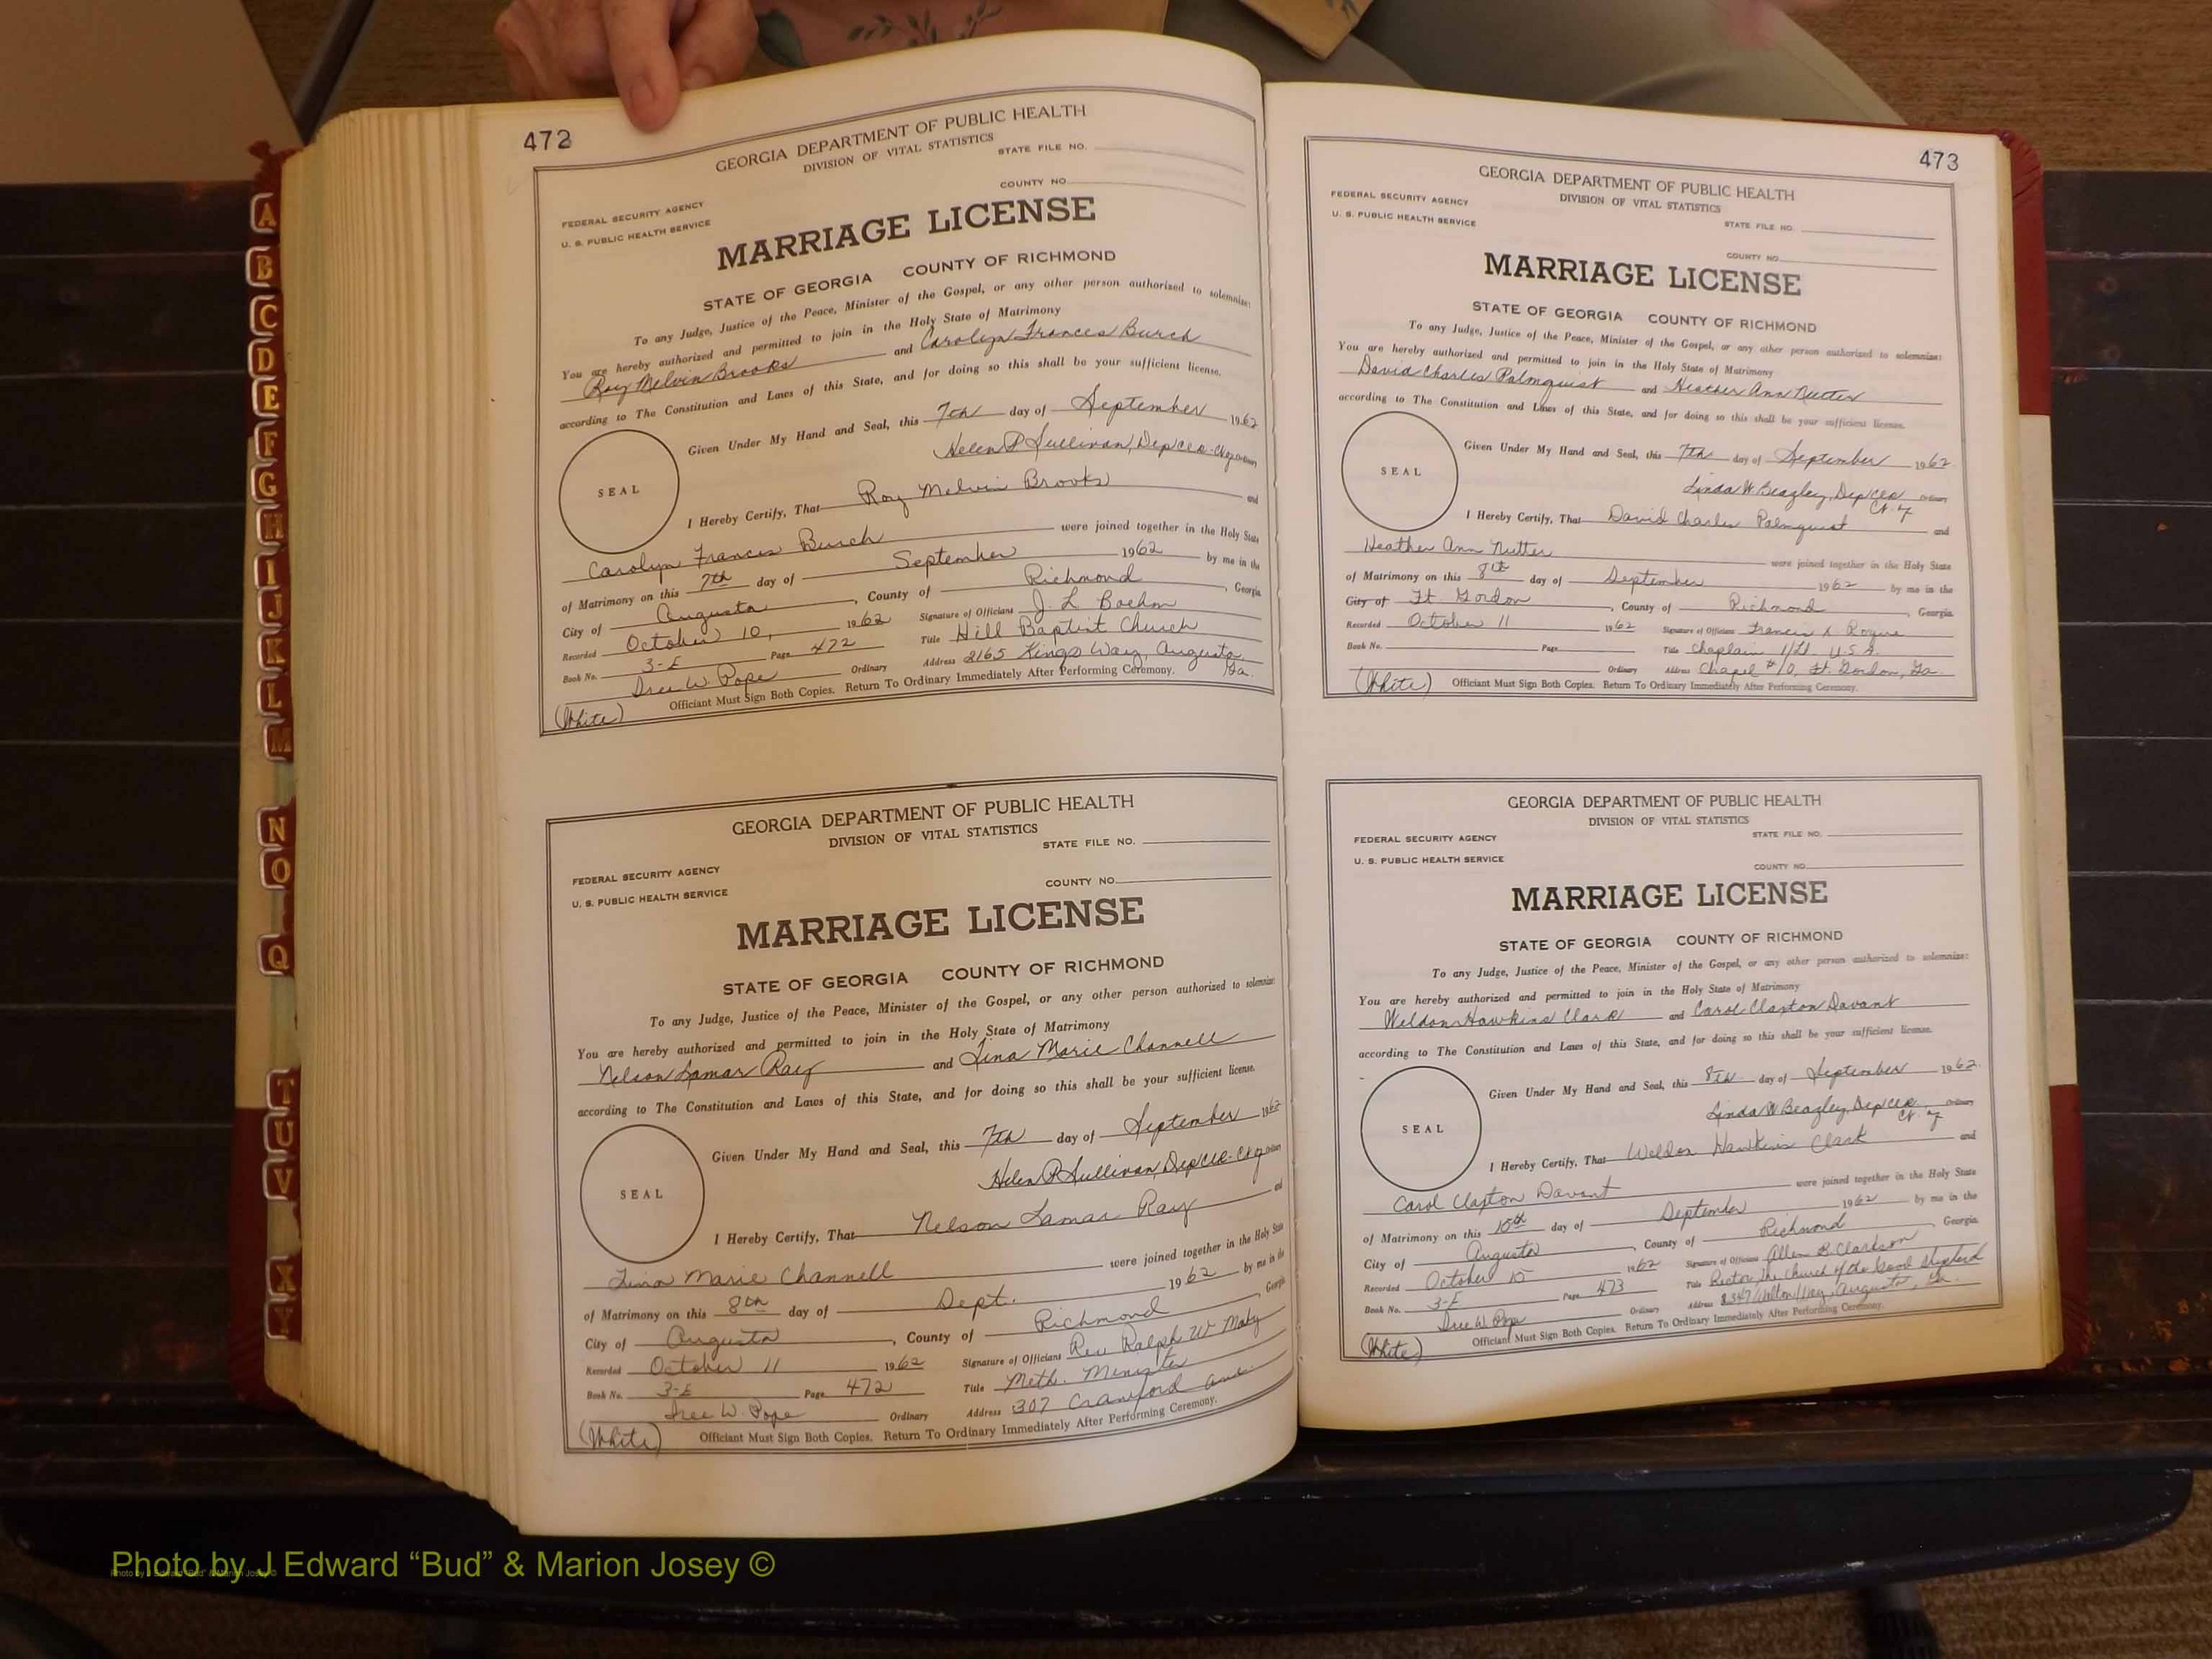 A
B
C
D
E
F
G
H
I
J
K
L
M
N
O
Q
T
U
V
X
Y
472
GEORGIA DEPARTMENT OF PUBLIC HEALTH
DIVISION OF VITAL STATISTICS
STATE FILE NO.
COUNTY NO.
FEDERAL SECURITY AGENCY
U. S. PUBLIC HEALTH SERVICE
MARRIAGE LICENSE
STATE OF GEORGIA COUNTY OF RICHMOND
To any Judge, Justice of the Peace, Minister of the Gospel, or any other person authorized to solemnize:
You are hereby authorized and permitted to join in the Holy State of Matrimony
Roy Melvin Brooks and Carolyn Frances Burch
according to The Constitution and Laws of this State, and for doing so this shall be your sufficient license.
Given Under My Hand and Seal, this 7th day of September 1962
Helen P Sullivan, Dep Clk Ordinary
SEAL
I Hereby Certify, That Roy Melvin Brooks and
Carolyn Frances Burch were joined together in the Holy State
of Matrimony on this 7th day of September 1962 by me in the
City of Augusta, County of Richmond, Georgia
Recorded October 10, 1962 Signature of Officiant J. L Boehm
Book No. 3-E Page 472 Title Hill Baptist Church
Iree W. Pope Ordinary Address 2165 Kings Way, Augusta, Ga.
(White) Officiant Must Sign Both Copies. Return To Ordinary Immediately After Performing Ceremony.
GEORGIA DEPARTMENT OF PUBLIC HEALTH
DIVISION OF VITAL STATISTICS
STATE FILE NO.
FEDERAL SECURITY AGENCY
COUNTY NO.
U. S. PUBLIC HEALTH SERVICE
MARRIAGE LICENSE
STATE OF GEORGIA COUNTY OF RICHMOND
To any Judge, Justice of the Peace, Minister of the Gospel, or any other person authorized to solemnize:
You are hereby authorized and permitted to join in the Holy State of Matrimony
Nelson Lamar Ray and Lina Marie Channell
according to The Constitution and Laws of this State, and for doing so this shall be your sufficient license.
Given Under My Hand and Seal, this 7th day of September 1962
Helen P Sullivan, Dep Clk Ordinary
SEAL
I Hereby Certify, That Nelson Lamar Ray and
Lina Marie Channell were joined together in the Holy State
of Matrimony on this 8th day of Sept. 1962 by me in the
City of Augusta, County of Richmond Georgia
Recorded October 11 1962 Signature of Officiant Rev Ralph W
Book No. 3-E Page 472 Title Meth. Minister
Iree W. Pope Ordinary Address 307 Crawford Ave.
(White) Officiant Must Sign Both Copies. Return To Ordinary Immediately After Performing Ceremony.
473
GEORGIA DEPARTMENT OF PUBLIC HEALTH
DIVISION OF VITAL STATISTICS
FEDERAL SECURITY AGENCY
U. S. PUBLIC HEALTH SERVICE
STATE FILE NO.
COUNTY NO.
MARRIAGE LICENSE
STATE OF GEORGIA COUNTY OF RICHMOND
To any Judge, Justice of the Peace, Minister of the Gospel, or any other person authorized to solemnize:
You are hereby authorized and permitted to join in the Holy State of Matrimony
David Charles Palmquist and Heather Ann Nutter
according to The Constitution and Laws of this State, and for doing so this shall be your sufficient license.
Given Under My Hand and Seal, this 7th day of September 1962
Linda W Beazley, Dep Clk Ordinary
SEAL
I Hereby Certify, That David Charles Palmquist and
Heather Ann Nutter were joined together in the Holy State
of Matrimony on this 8th day of September 1962 by me in the
City of Ft. Gordon, County of Richmond, Georgia.
Recorded October 11 1962 Signature of Officiant Francis X
Book No. Page Title Chaplain 1/Lt. U.S.A.
Ordinary Address Chapel #10, Ft. Gordon, Ga.
(White) Officiant Must Sign Both Copies. Return To Ordinary Immediately After Performing Ceremony.
GEORGIA DEPARTMENT OF PUBLIC HEALTH
DIVISION OF VITAL STATISTICS
STATE FILE NO.
FEDERAL SECURITY AGENCY
U. S. PUBLIC HEALTH SERVICE
COUNTY NO.
MARRIAGE LICENSE
STATE OF GEORGIA COUNTY OF RICHMOND
To any Judge, Justice of the Peace, Minister of the Gospel, or any other person authorized to solemnize:
You are hereby authorized and permitted to join in the Holy State of Matrimony
Weldon Hawkins Clark and Carol Claxton Davant
according to The Constitution and Laws of this State, and for doing so this shall be your sufficient license.
Given Under My Hand and Seal, this 8th day of September 1962
Linda W Beazley, Dep Clk Ordinary
SEAL
I Hereby Certify, That Weldon Hawkins Clark and
Carol Claxton Davant were joined together in the Holy State
of Matrimony on this 15th day of September 1962 by me in the
City of Augusta, County of Richmond, Georgia
Recorded October 15 1962 Signature of Officiant Allen B. Clarkson
Book No. 3-E Page 473 Title Rector, The Church of the Good Shepherd
Iree W. Pope Ordinary Address Walton Way, Augusta, Ga.
(White) Officiant Must Sign Both Copies. Return To Ordinary Immediately After Performing Ceremony.
Photo by J Edward “Bud” & Marion Josey ©
Photo by J Edward “Bud” & Marion Josey ©